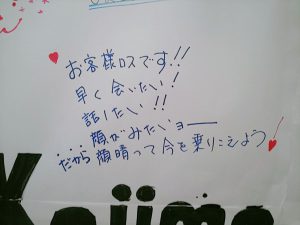 お客様ロスです!!
早く会いたい!
話したい!!
顔がみたいョー
だから顔晴って今を乗りこえよう!
Kojima